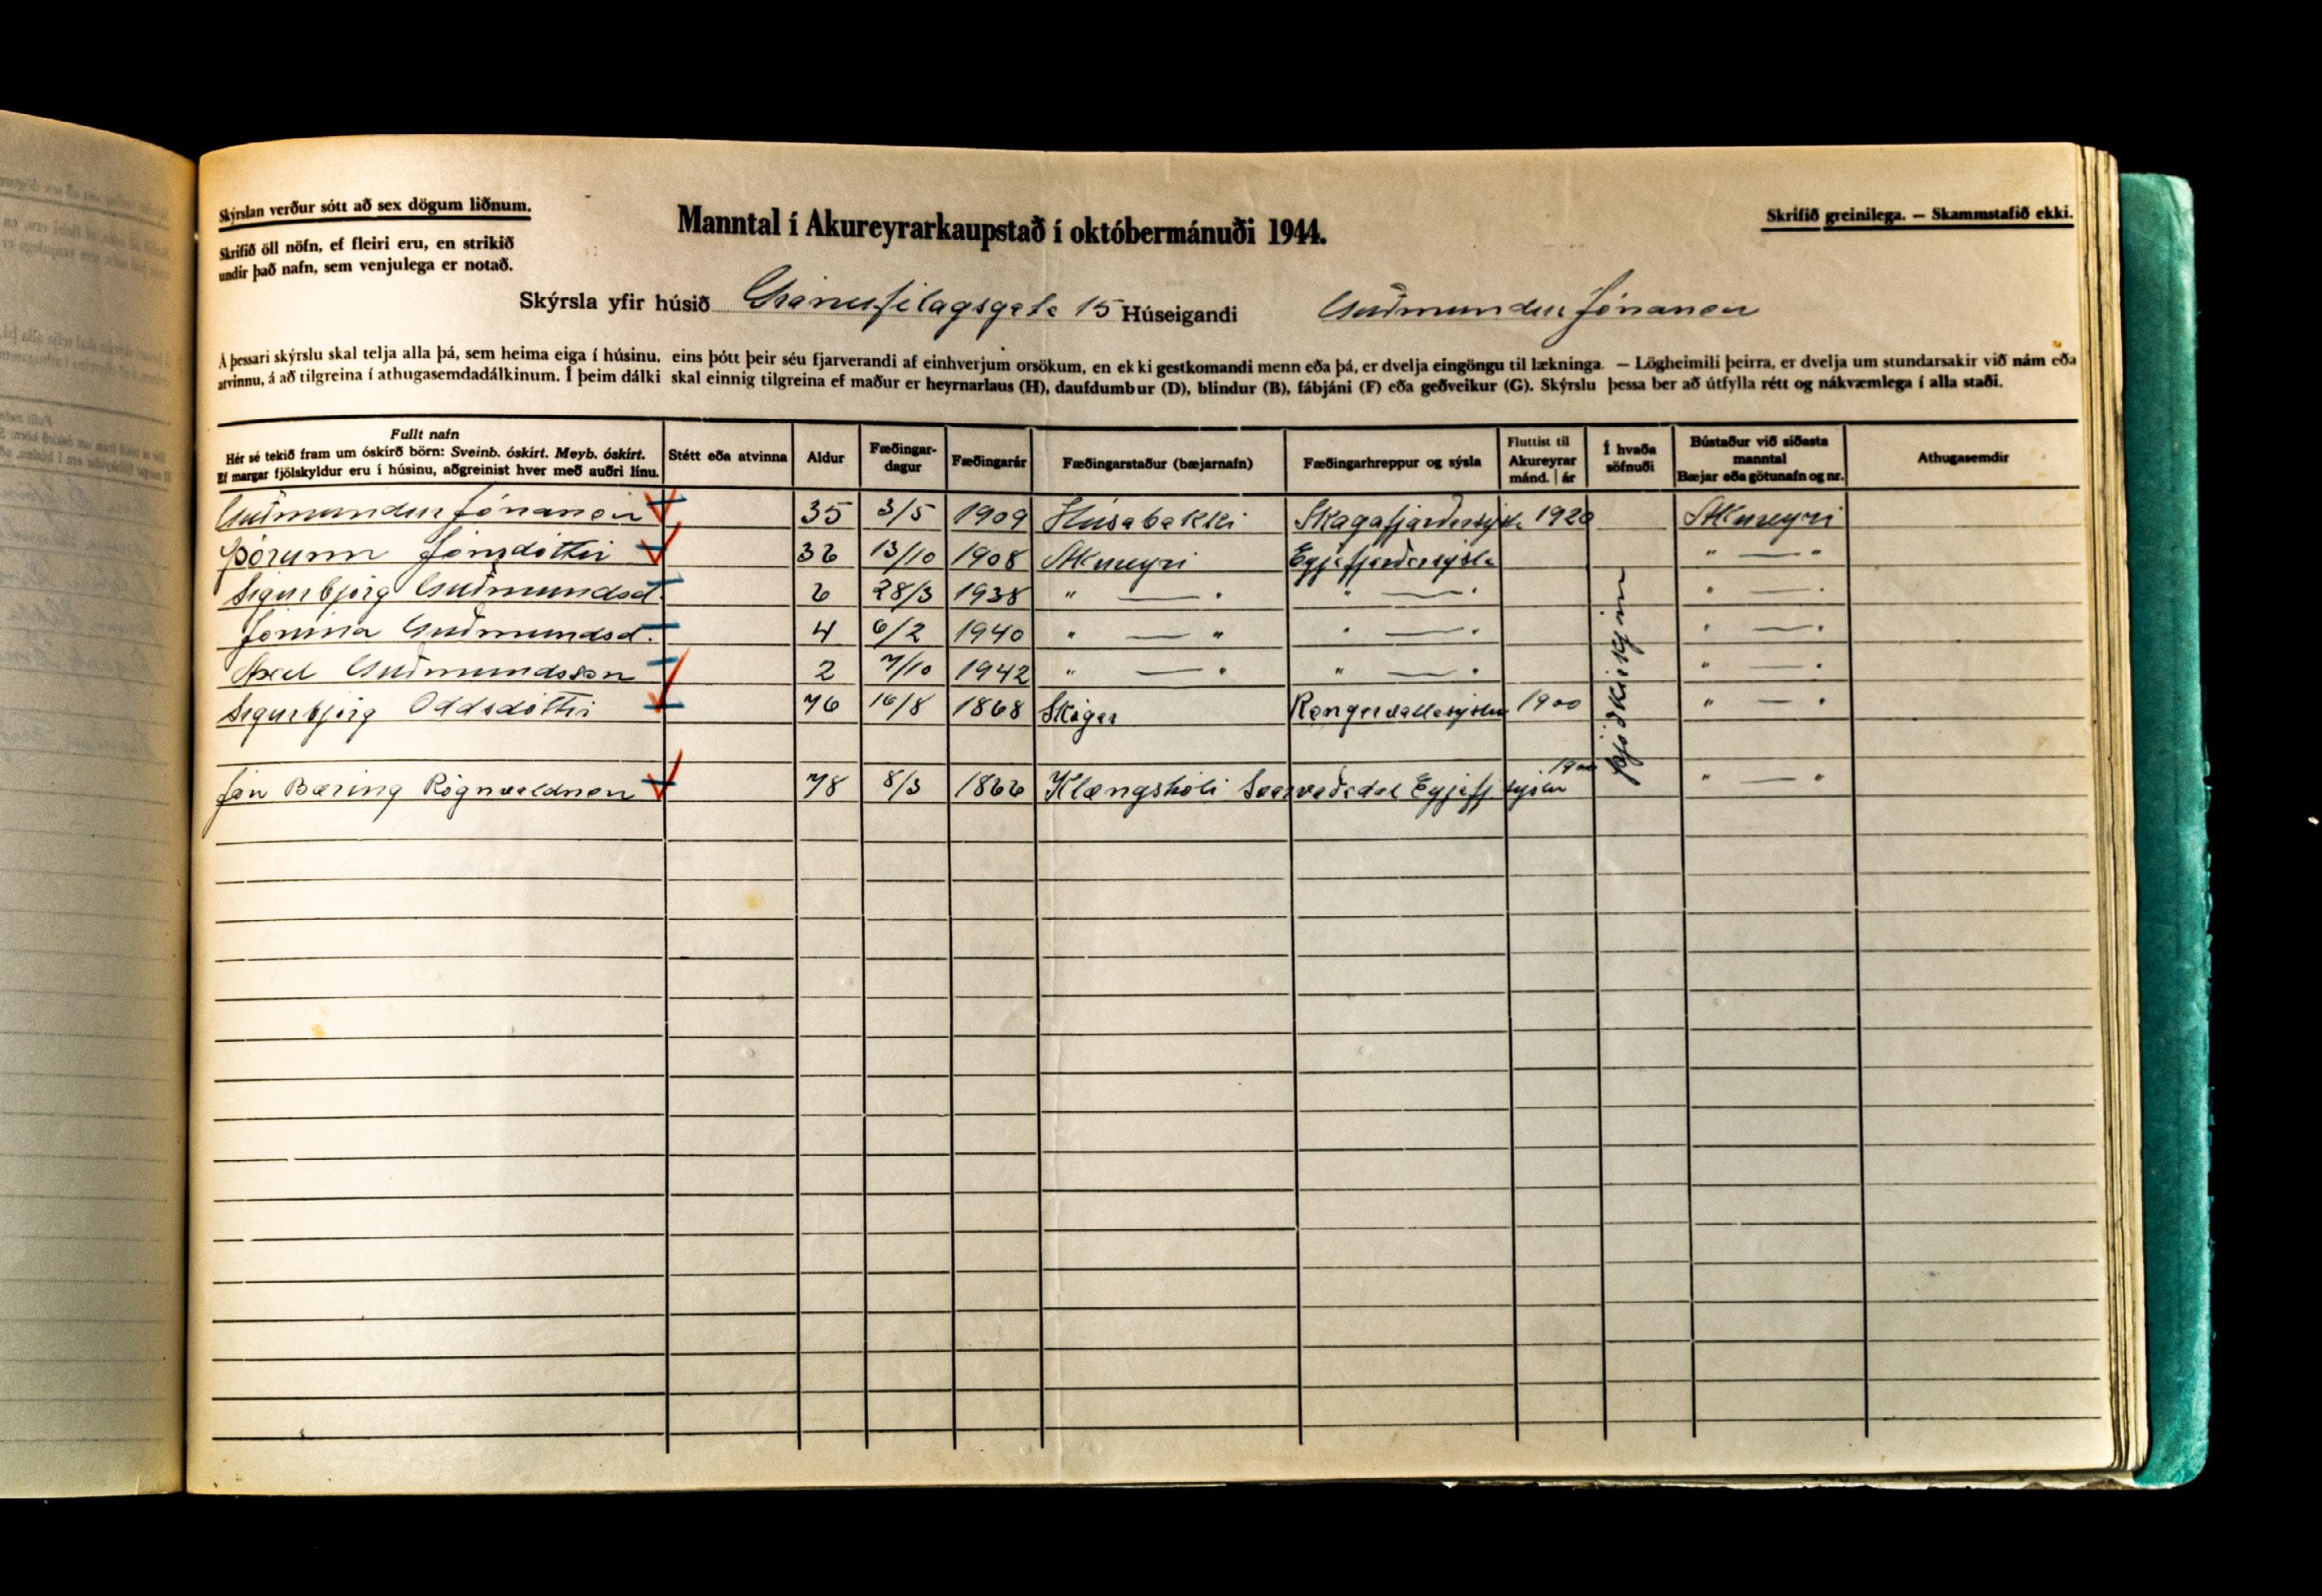 Skýrslan verður sótt að sex dögum liðnum.
Skrifið öll nöfn, ef fleiri eru, en strikið
undir það nafn, sem venjulega er notað.
Manntal í Akureyrarkaupstað í októbermánuði 1944.
Skrifið greinilega. — Skammstafið ekki.
Skýrsla yfir húsið Gránufélagsgata 15 Húseigandi Guðmundur Jónasson
Á þessari skýrslu skal telja alla þá, sem heima eiga í húsinu, eins þótt þeir séu fjarverandi af einhverjum orsökum, en ekki gestkomandi menn eða þá, er dvelja eingöngu til lækninga. — Lögheimili þeirra, er dvelja um stundarsakir við nám eða
atvinnu, á að tilgreina í athugasemdadálkinum. Í þeim dálki skal einnig tilgreina ef maður er heyrnarlaus (H), daufdumbur (D), blindur (B), fábjáni (F) eða geðveikur (G). Skýrslu þessa ber að útfylla rétt og nákvæmlega í alla staði.
Fullt nafn
Hér sé tekið fram um óskírð börn: Sveinb. óskírt. Meyb. óskírt.
Ef margar fjölskyldur eru í húsinu, aðgreinist hver með auðri línu.
Stétt eða atvinna
Aldur
Fæðingar-
dagur
Fæðingarár
Fæðingarstaður (bæjarnafn)
Fæðingarhreppur og sýsla
Fluttist til
Akureyrar
mánd. | ár
Í hvaða
söfnuði
Bústaður við síðasta
manntal
Bæjar eða götunafn og nr.
Athugasemdir
Guðmundur Jónasson 35 3/5 1909 Húsabakki Skagafjarðarsýsla 1928 Akureyri
Þórunn Jónsdóttir 36 13/10 1908 Akureyri Eyjafjarðarsýsla " — "
Sigurbjörg Guðmundsd. 6 28/3 1938 " — " " — " " — "
Jónína Guðmundsd. 4 6/2 1940 " — " " — " " — "
Axel Guðmundsson 2 7/10 1942 " — " " — " " — "
Sigurbjörg Oddsdóttir 76 16/8 1868 Skógar Rangarvallasýslu 1900 " — "
Jón Bæring Rögnvaldsson 78 8/3 1866 Klængshóli Svarvaðsdal Eyjafj.sýslu 1900 " — "
Þjóðkirkjunn